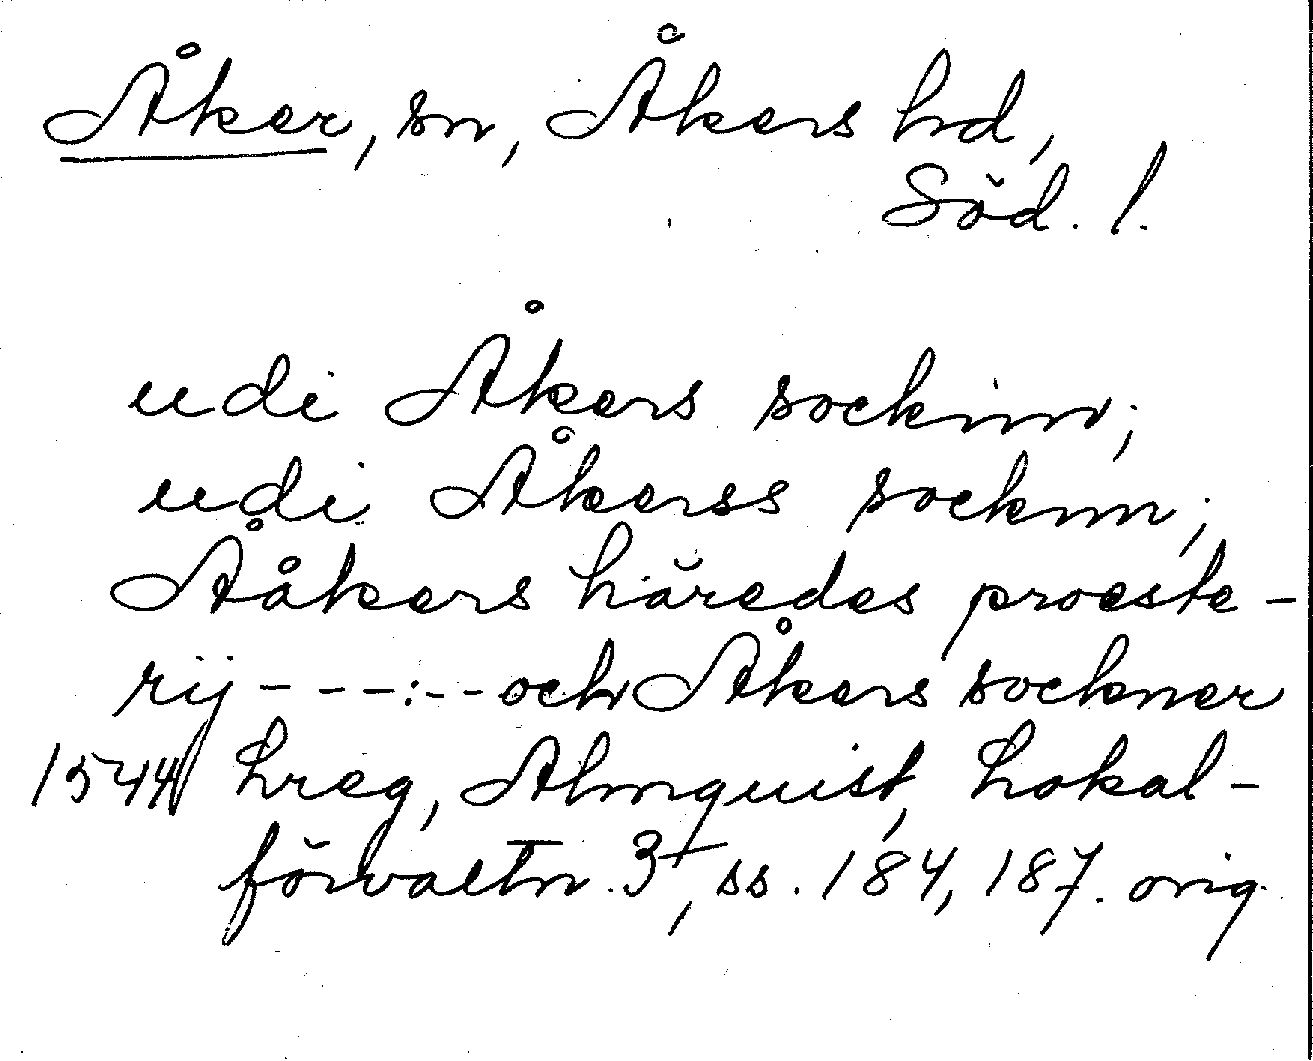 Åker, sn, Åkers hd,
Söd. l.
udi Åkers sockinn;
udi Åkerss socknn;
Ååkers häredes proeste-
rij - - - : - - och Åkers sockner
1544 hreg, Almquist, Lokal-
förvaltn. 3, ss. 184, 187. orig.